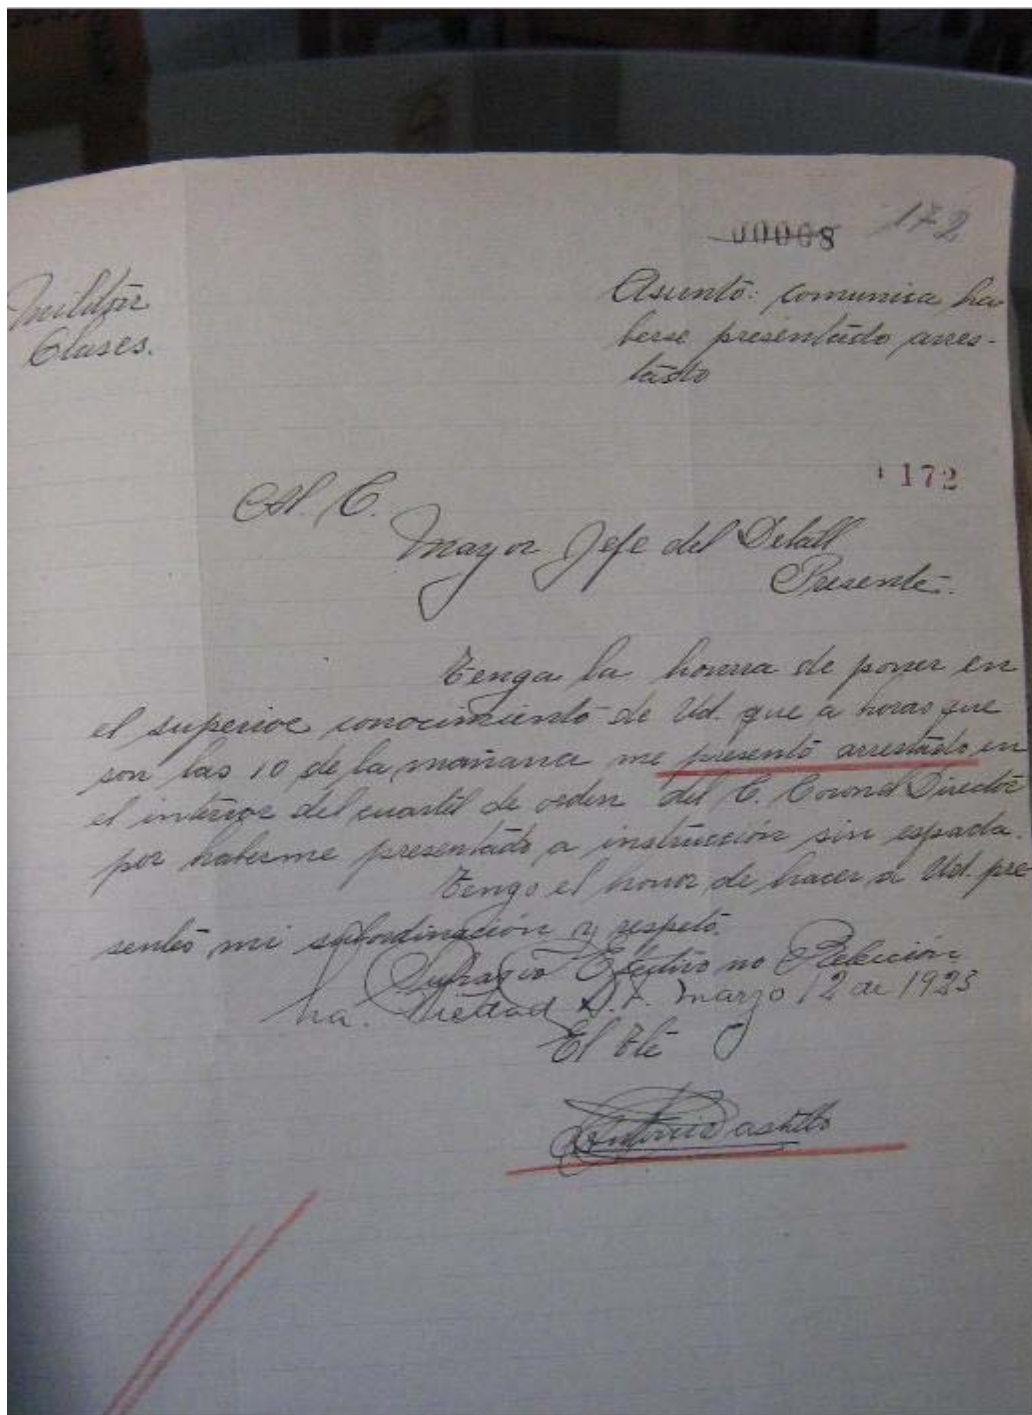 00008 172
Militar
Clases.
Asunto: comunica ha
berse presentado arres-
tado
172
Al C.
Mayor Jefe del Detall
Presente.
Tengo la honra de poner en
el superior conocimiento de Ud. que a horas que
son las 10 de la mañana me presentó arrestado en
el interior del cuartel de orden del C. Coronel Director
por haberme presentado a instrucción sin espada.
Tengo el honor de hacer a Ud. pre
sentes mi subordinación y respeto.
Sufragio Efectivo no Relección
La. Piedad D.F. marzo 12 de 1923
El Tte
Antonio Castillo